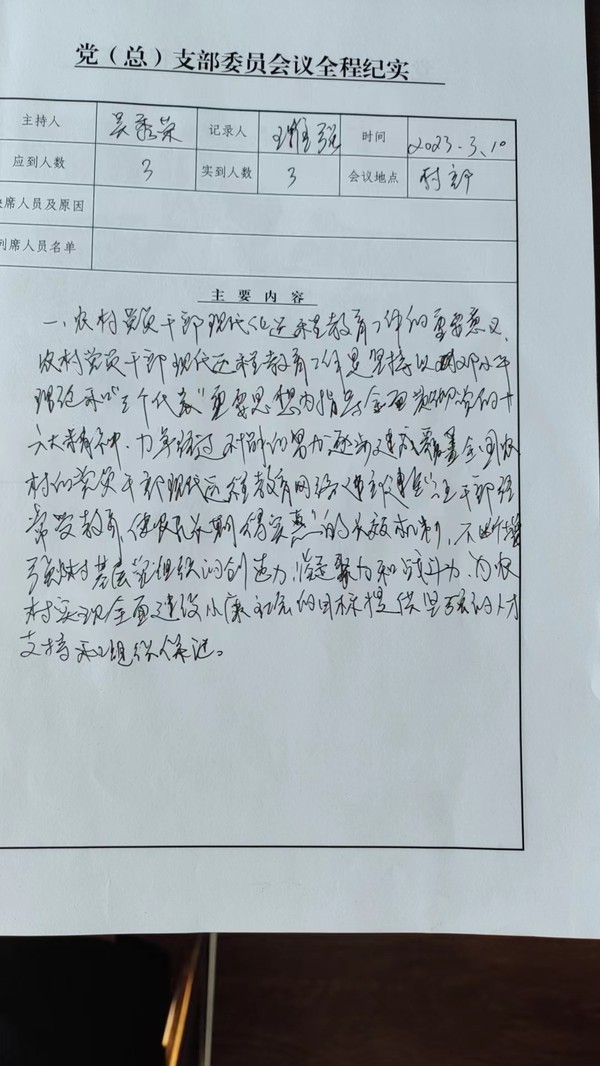 党（总）支部委员会议全程纪实
主持人 吴秀荣 记录人 时间 2023.3.10
应到人数 3 实到人数 3 会议地点 村部
席人员及原因
列席人员名单
主要内容
一、农村党员干部现代化远程教育工作的重要意义、
农村党员干部现代远程教育工作是坚持以邓小平
理论和“三个代表”重要思想为指导全面贯彻党的十
六大精神、力争经过 时的努力逐步建成覆盖全国农
村的党员干部现代远程教育网络 建 干部经
常受教育、使农民长期得实惠”的长效机制，不断增
强农村基层党组织的创造力凝聚力和战斗力、为农
村实现全面建设小康社会的目标提供坚强的人才
支持和组织保证。